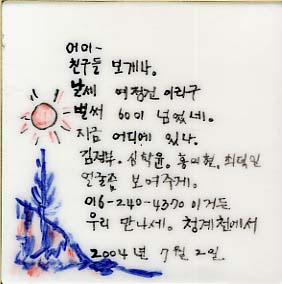 어이~
친구들 보게나.
날세 여정건 이라구
벌써 60이 넘었네.
지금 어디에 있나.
김정부. 심학윤. 홍여현. 최덕인
얼굴좀 보여주게.
016-240-4370 이거든
우리 만나세. 청계천에서
2004년 7월 2일.